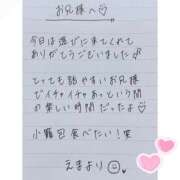 お兄様へ♡
今日は遊びに来てくれて
ありがとうございました
とっても話やすいお兄様
でイチャイチャあっという間
の楽しい時間だったよ♡
小籠包食べたい!笑
えまより